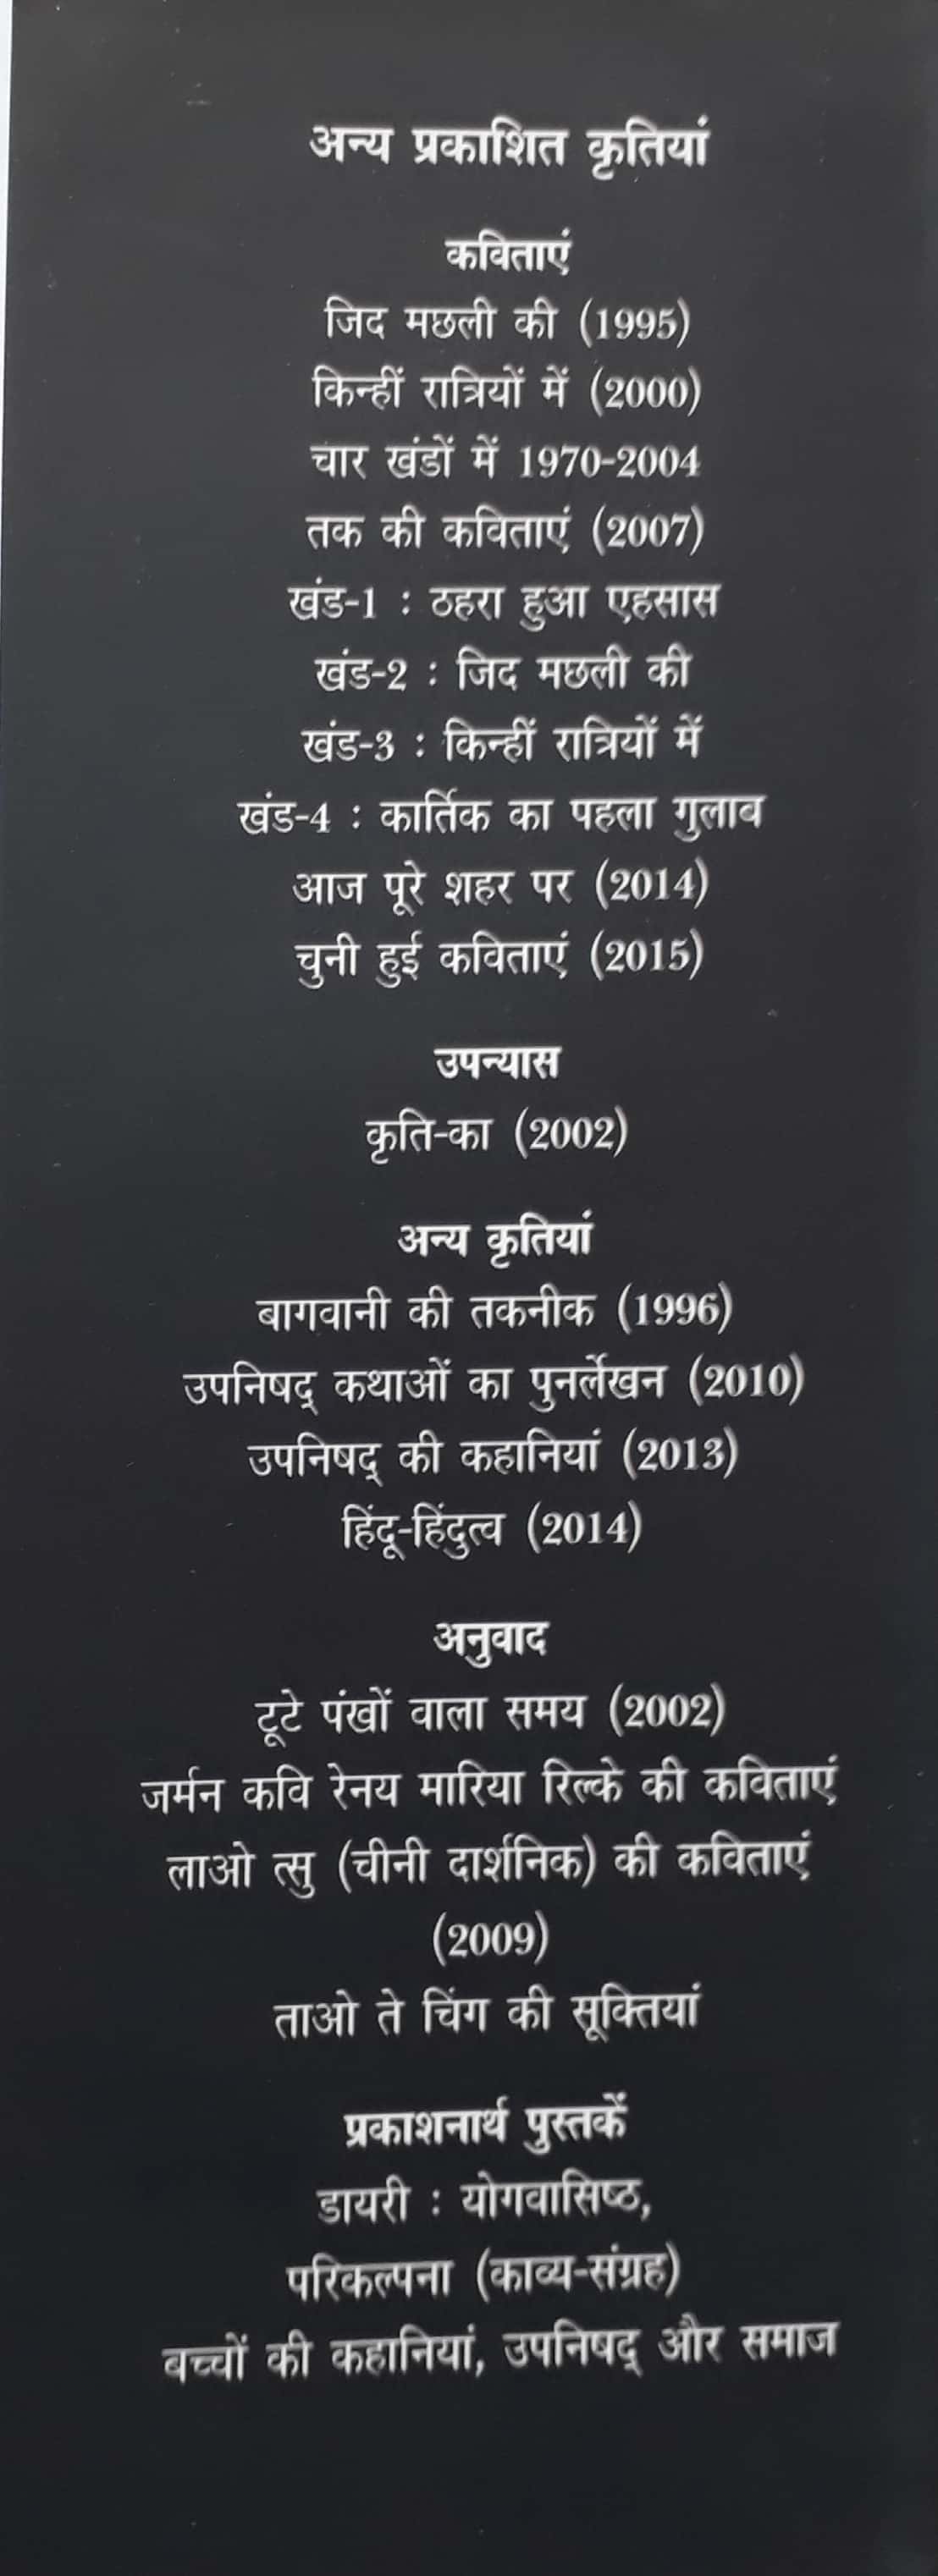 अन्य प्रकाशित कृतियां
कविताएं
जिद मछली की (1995)
किन्हीं रात्रियों में (2000)
चार खंडों में 1970-2004
तक की कविताएं (2007)
खंड-1 : ठहरा हुआ एहसास
खंड-2 : जिद मछली की
खंड-3 : किन्हीं रात्रियों में
खंड-4 : कार्तिक का पहला गुलाब
आज पूरे शहर पर (2014)
चुनी हुई कविताएं (2015)
उपन्यास
कृति-का (2002)
अन्य कृतियां
बागवानी की तकनीक (1996)
उपनिषद् कथाओं का पुनर्लेखन (2010)
उपनिषद् की कहानियां (2013)
हिंदू-हिंदुत्व (2014)
अनुवाद
टूटे पंखों वाला समय (2002)
जर्मन कवि रेनय मारिया रिल्के की कविताएं
लाओ त्सु (चीनी दार्शनिक) की कविताएं
(2009)
ताओ ते चिंग की सूक्तियां
प्रकाशनार्थ पुस्तकें
डायरी : योगवासिष्ठ,
परिकल्पना (काव्य-संग्रह)
बच्चों की कहानियां, उपनिषद् और समाज